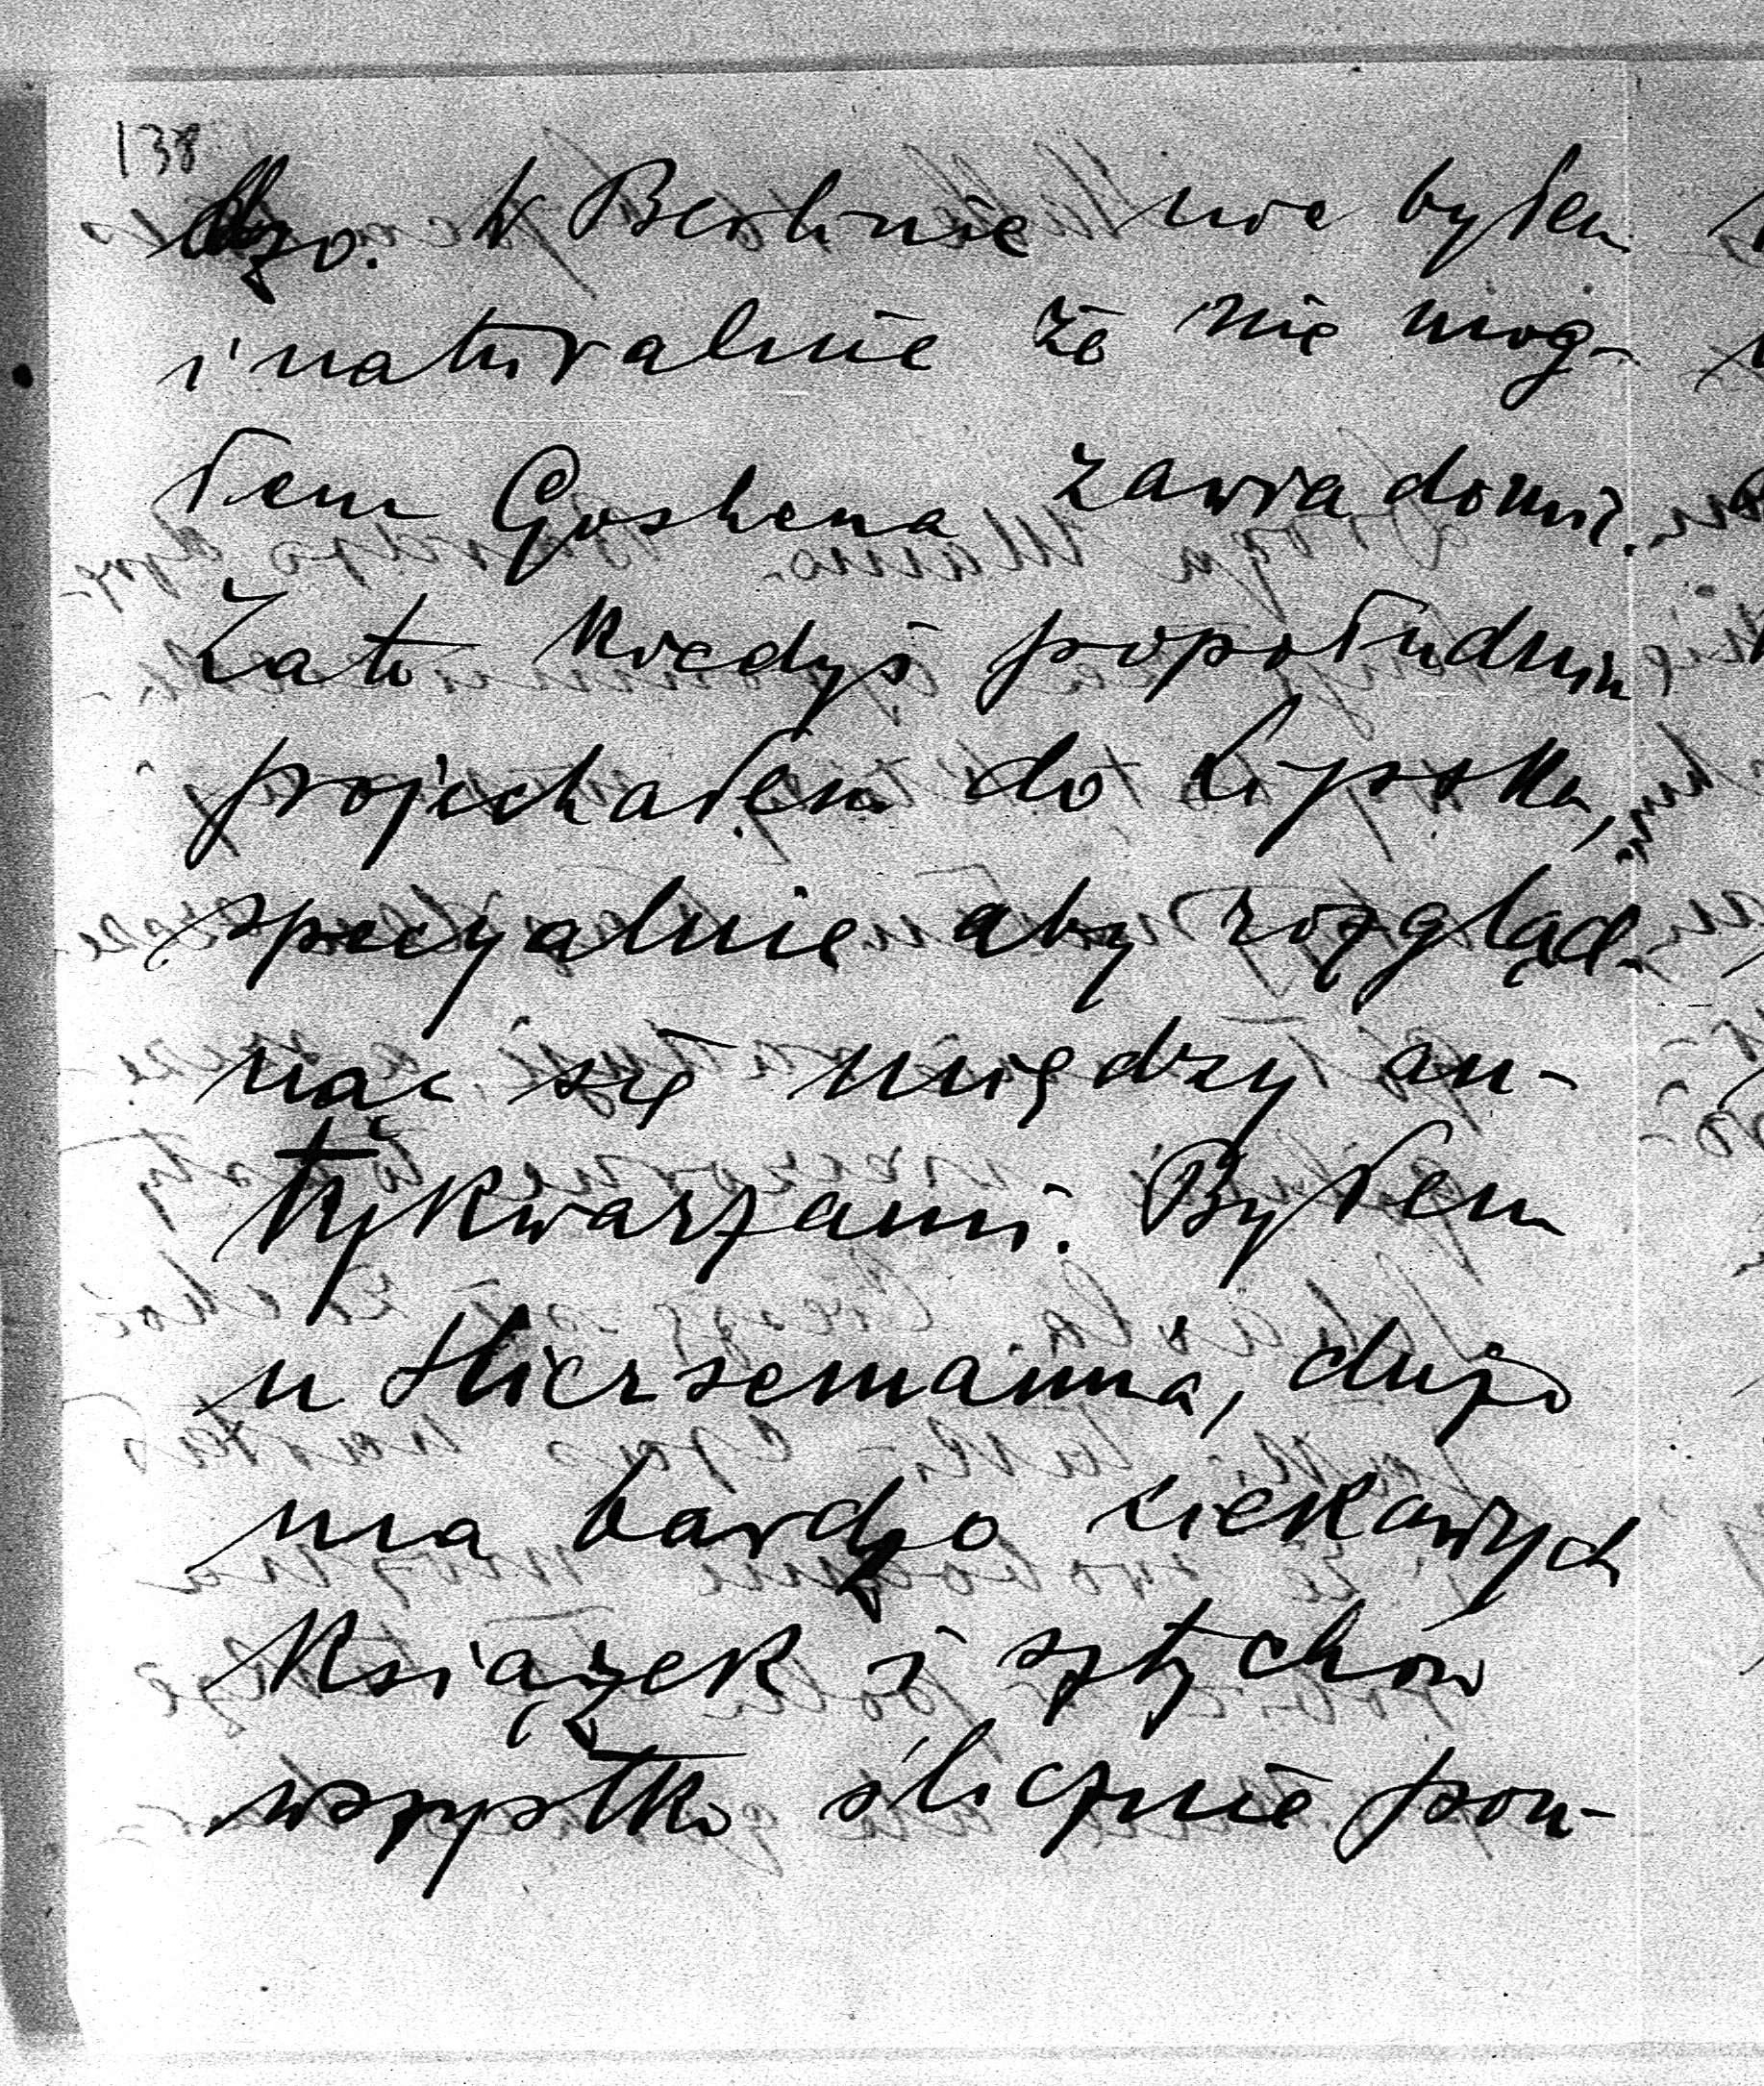 138
dzo. W Berlinie nie byłem
i naturalnie że nie mog-
łem Goshena zawiadomić.
Zato kiedyś popołudniu
pojechałem do Lipska,
specyalnie aby rozgląd-
nąć się między an-
tykwarzami. Byłem
u Hiersemanna, dużo
ma bardzo ciekawych
książek i sztychów
wszystko ślicznie pou-